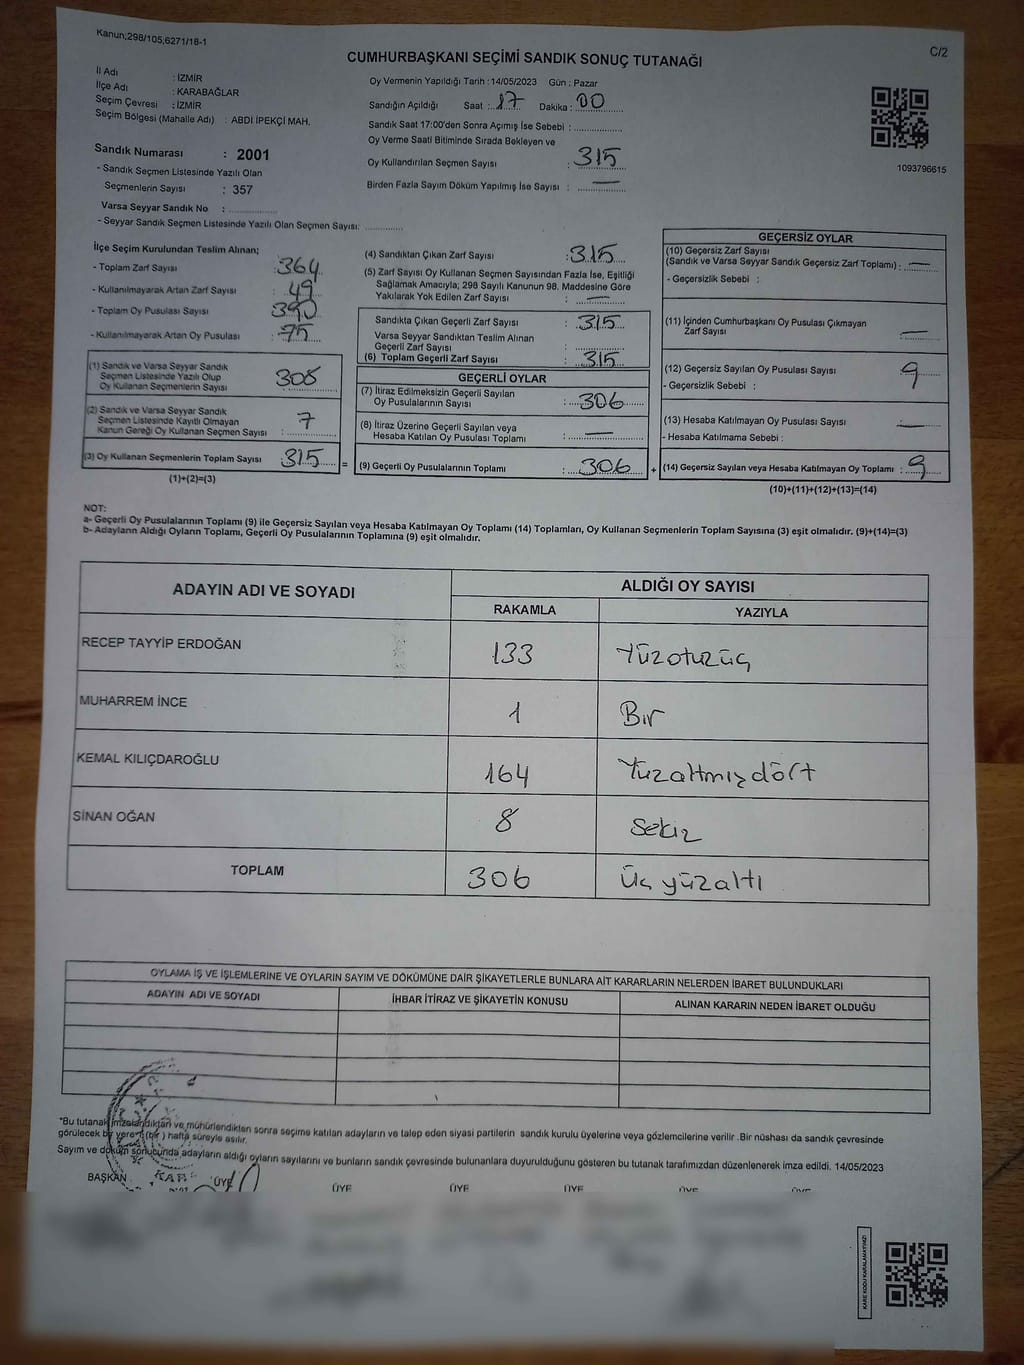 Kanun;298/105,6271/18-1
C/2
CUMHURBAŞKANI SEÇİMİ SANDIK SONUÇ TUTANAĞI
İl Adı : İZMİR
İlçe Adı : KARABAĞLAR
Seçim Çevresi : İZMİR
Seçim Bölgesi (Mahalle Adı) : ABDİ İPEKÇİ MAH.
Sandık Numarası : 2001
- Sandık Seçmen Listesinde Yazılı Olan
Seçmenlerin Sayısı : 357
Varsa Seyyar Sandık No :
- Seyyar Sandık Seçmen Listesinde Yazılı Olan Seçmen Sayısı:
Oy Vermenin Yapıldığı Tarih :14/05/2023 Gün : Pazar
Sandığın Açıldığı Saat : 17 Dakika : 00
Sandık Saat 17:00'den Sonra Açımış İse Sebebi :
Oy Verme Saati Bitiminde Sırada Bekleyen ve
Oy Kullandırılan Seçmen Sayısı : 315
Birden Fazla Sayım Döküm Yapılmış İse Sayısı : —
1093796615
İlçe Seçim Kurulundan Teslim Alınan;
- Toplam Zarf Sayısı : 364
- Kullanılmayarak Artan Zarf Sayısı : 49
- Toplam Oy Pusulası Sayısı : 390
- Kullanılmayarak Artan Oy Pusulası : 75
(1) Sandık ve Varsa Seyyar Sandık
Seçmen Listesinde Yazılı Olup
Oy Kullanan Seçmenlerin Sayısı : 308
(2) Sandık ve Varsa Seyyar Sandık
Seçmen Listesinde Kayıtlı Olmayan
Kanun Gereği Oy Kullanan Seçmen Sayısı : 7
(3) Oy Kullanan Seçmenlerin Toplam Sayısı : 315 =
(1)+(2)=(3)
(4) Sandıktan Çıkan Zarf Sayısı : 315
(5) Zarf Sayısı Oy Kullanan Seçmen Sayısından Fazla İse, Eşitliği
Sağlamak Amacıyla; 298 Sayılı Kanunun 98. Maddesine Göre
Yakılarak Yok Edilen Zarf Sayısı : —
Sandıkta Çıkan Geçerli Zarf Sayısı : 315
Varsa Seyyar Sandıktan Teslim Alınan
Geçerli Zarf Sayısı :
(6) Toplam Geçerli Zarf Sayısı : 315
GEÇERLİ OYLAR
(7) İtiraz Edilmeksizin Geçerli Sayılan
Oy Pusulalarının Sayısı : 306
(8) İtiraz Üzerine Geçerli Sayılan veya
Hesaba Katılan Oy Pusulası Toplamı : —
(9) Geçerli Oy Pusulalarının Toplamı : 306 +
GEÇERSİZ OYLAR
(10) Geçersiz Zarf Sayısı
(Sandık ve Varsa Seyyar Sandık Geçersiz Zarf Toplamı) : —
- Geçersizlik Sebebi :
(11) İçinden Cumhurbaşkanı Oy Pusulası Çıkmayan
Zarf Sayısı : —
(12) Geçersiz Sayılan Oy Pusulası Sayısı : 9
- Geçersizlik Sebebi :
(13) Hesaba Katılmayan Oy Pusulası Sayısı : —
- Hesaba Katılmama Sebebi :
(14) Geçersiz Sayılan veya Hesaba Katılmayan Oy Toplamı : 9
(10)+(11)+(12)+(13)=(14)
NOT:
a- Geçerli Oy Pusulalarının Toplamı (9) ile Geçersiz Sayılan veya Hesaba Katılmayan Oy Toplamı (14) Toplamları, Oy Kullanan Seçmenlerin Toplam Sayısına (3) eşit olmalıdır. (9)+(14)=(3)
b- Adayların Aldığı Oyların Toplamı, Geçerli Oy Pusulalarının Toplamına (9) eşit olmalıdır.
ADAYIN ADI VE SOYADI
ALDIĞI OY SAYISI
RAKAMLA YAZIYLA
RECEP TAYYİP ERDOĞAN 133 Yüzotuzüç
MUHARREM İNCE 1 Bir
KEMAL KILIÇDAROĞLU 164 Yüzaltmışdört
SİNAN OĞAN 8 Sekiz
TOPLAM 306 Üç yüzaltı
OYLAMA İŞ VE İŞLEMLERİNE VE OYLARIN SAYIM VE DÖKÜMÜNE DAİR ŞİKAYETLERLE BUNLARA AİT KARARLARIN NELERDEN İBARET BULUNDUKLARI
ADAYIN ADI VE SOYADI İHBAR İTİRAZ VE ŞİKAYETİN KONUSU ALINAN KARARIN NEDEN İBARET OLDUĞU
"Bu tutanak imzalandıktan ve mühürlendikten sonra seçime katılan adayların ve talep eden siyasi partilerin sandık kurulu üyelerine veya gözlemcilerine verilir .Bir nüshası da sandık çevresinde
görülecek bir yere 1 (bir ) hafta süreyle asılır.
Sayım ve döküm sonucunda adayların aldığı oyların sayılarını ve bunların sandık çevresinde bulunanlara duyurulduğunu gösteren bu tutanak tarafımızdan düzenlenerek imza edildi. 14/05/2023
BAŞKAN ÜYE ÜYE ÜYE ÜYE ÜYE ÜYE
KARE KODU KARALAMAYINIZ!